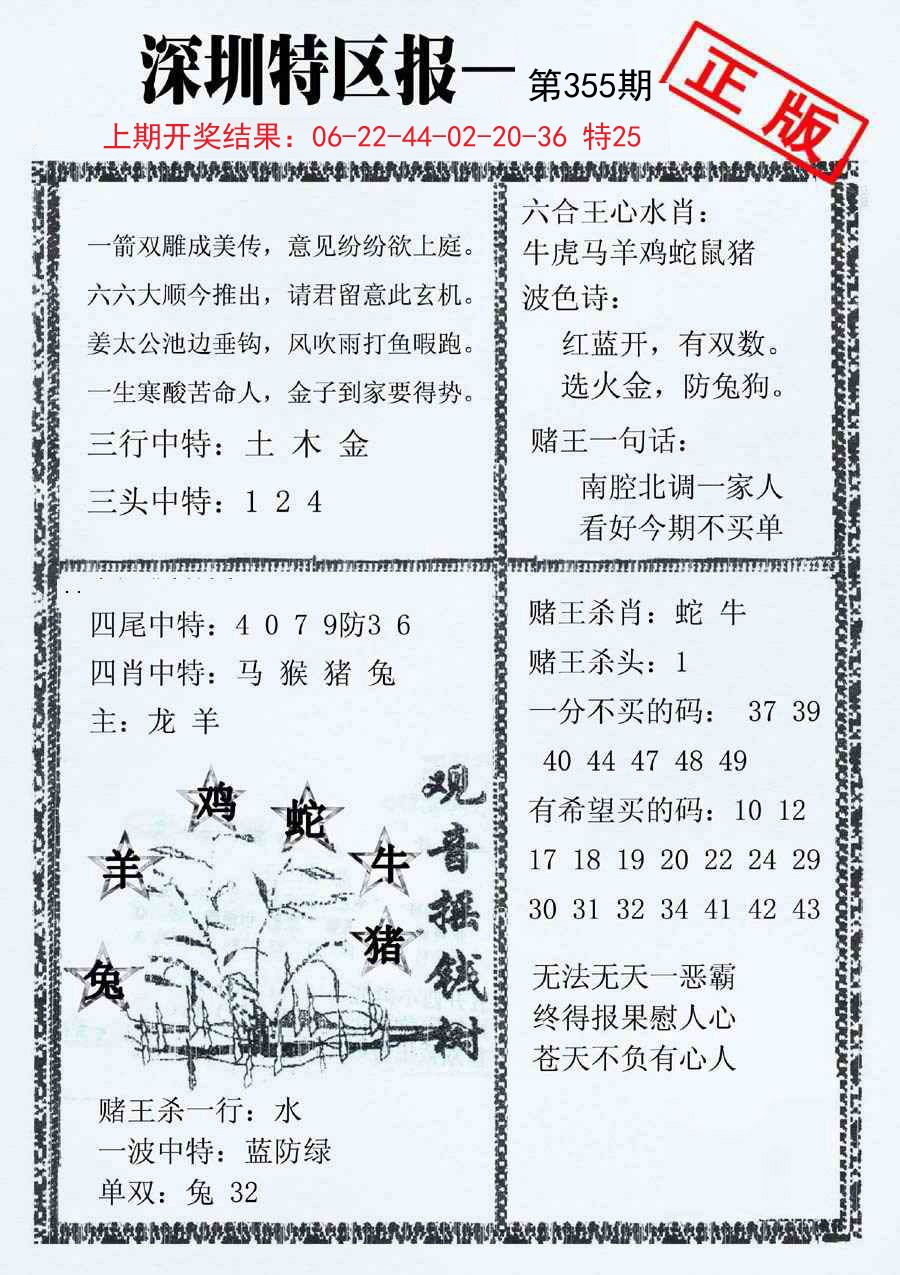 深圳特区报一 第355期
正版
上期开奖结果：06-22-44-02-20-36 特25
一箭双雕成美传，意见纷纷欲上庭。
六六大顺今推出，请君留意此玄机。
姜太公池边垂钩，风吹雨打鱼暇跑。
一生寒酸苦命人，金子到家要得势。
三行中特：土 木 金
三头中特：1 2 4
六合王心水肖：
牛虎马羊鸡蛇鼠猪
波色诗：
红蓝开，有双数。
选火金，防兔狗。
赌王一句话：
南腔北调一家人
看好今期不买单
四尾中特：4 0 7 9防3 6
四肖中特：马 猴 猪 兔
主：龙 羊
鸡
蛇
羊
牛
猪
兔
观音摇钱树
赌王杀一行：水
一波中特：蓝防绿
单双：兔 32
赌王杀肖：蛇 牛
赌王杀头：1
一分不买的码： 37 39
40 44 47 48 49
有希望买的码：10 12
17 18 19 20 22 24 29
30 31 32 34 41 42 43
无法无天一恶霸
终得报果慰人心
苍天不负有心人